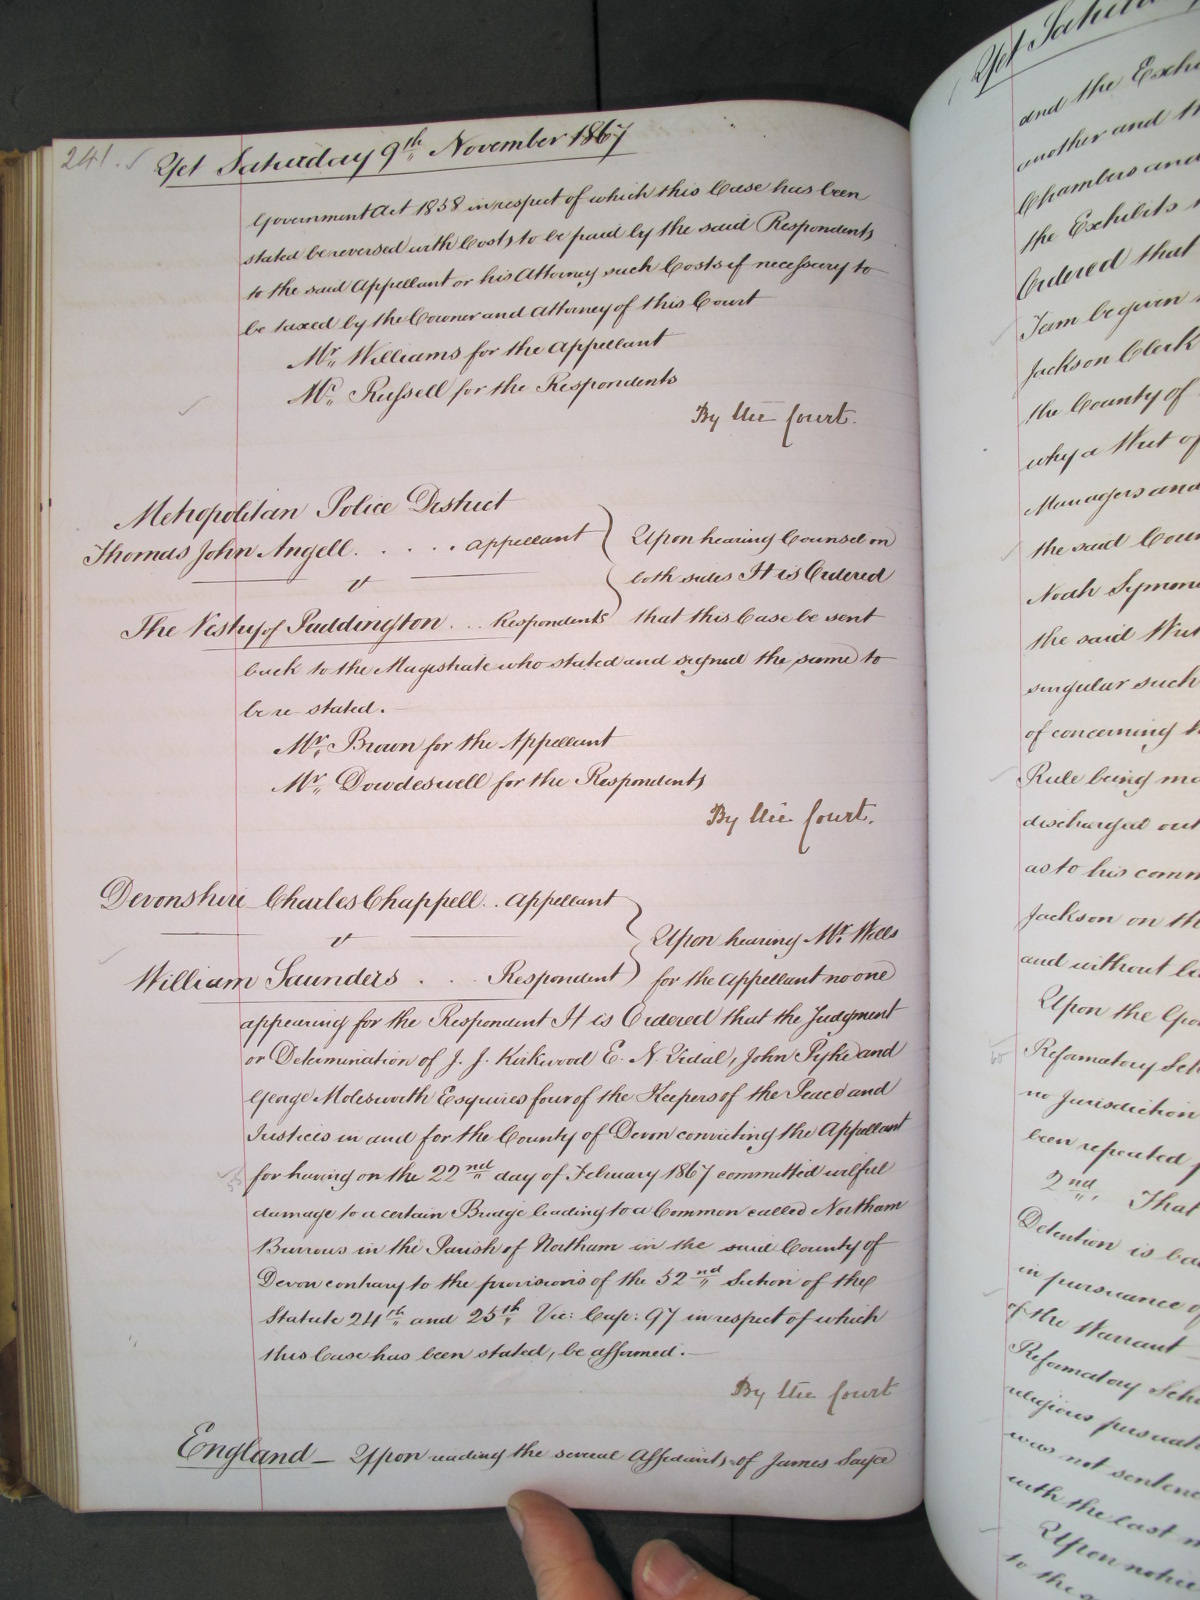 241.
Yet Saturday 9th November 1867
Government Act 1858 in respect of which this Case has been
stated be reversed with Costs to be paid by the said Respondents
to the said Appellant or his Attorney such Costs if necessary to
be taxed by the Coroner and Attorney of this Court
Mr. Williams for the Appellant
Mr. Russell for the Respondents
By the Court.
Metropolitan Police District
Thomas John Angell . . . . . appellant
v
The Vestry of Paddington . . . Respondents
Upon hearing Counsel on
both sides It is Ordered
that this Case be sent
back to the Magistrate who stated and signed the same to
be re-stated.
Mr. Brown for the Appellant
Mr. Dowdeswell for the Respondents
By the Court.
Devonshire Charles Chappell . . Appellant
v
William Saunders . . . Respondent
Upon hearing Mr. Wills
for the Appellant no one
appearing for the Respondent It is Ordered that the Judgment
or Determination of J. J. Kirkwood E. N. Vidal, John Pyke and
George Molesworth Esquires four of the Keepers of the Peace and
Justices in and for the County of Devon convicting the Appellant
for having on the 22nd day of February 1867 committed wilful
damage to a certain Bridge leading to a Common called Northam
Burrows in the Parish of Northam in the said County of
Devon contrary to the provisions of the 52nd Section of the
Statute 24th and 25th Vic: Cap: 97 in respect of which
this Case has been stated, be affirmed.
By the Court
England — Upon reading the several Affidavits of James Saye
Yet Saturday
and the Exhi
another and th
Chambers and
the Exhibits
Ordered that
Jam be given
Jackson Clerk
the County of
why a Writ of
Managers and
the said Coun
Noah Symon
the said Writ
singular such
of concerning
Rule being ma
discharged out
as to his comm
Jackson on th
and without
Upon the
Reformatory Sch
no Jurisdiction
been repeated
2nd. That
Detention is ba
in pursuance of
of the Warrant
Reformatory Scho
religious persuas
was not sentenc
with the last
Upon notice
to the